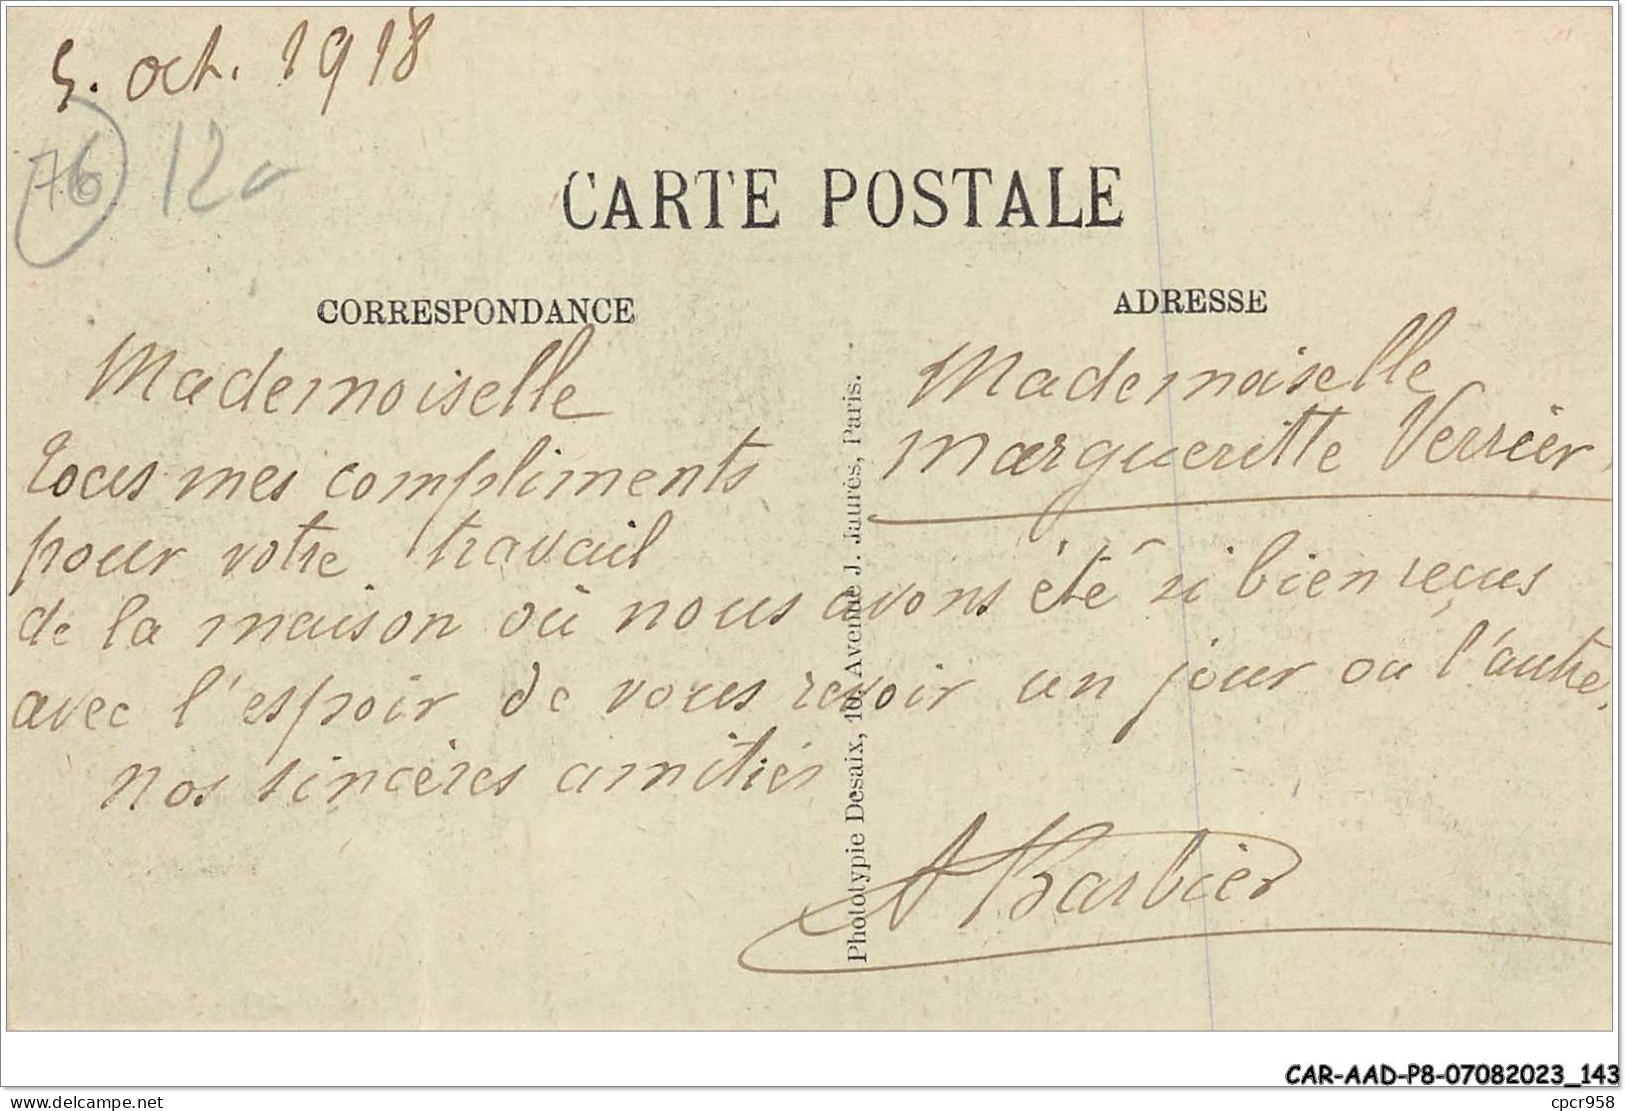 5. oct. 1918
76 12
CARTE POSTALE
CORRESPONDANCE
ADRESSE
Mademoiselle
Tous mes compliments
pour votre travail
Mademoiselle
Margueritte Verrier
de la maison où nous avons été si bien reçus
avec l'espoir de vous revoir un jour ou l'autre.
nos sincères amitiés
A Barbier
Phototypie Desaix, 10, Avenue J. Jaurès, Paris.
CAR-AAD-P8-07082023_143
www.delcampe.net
cpcr958